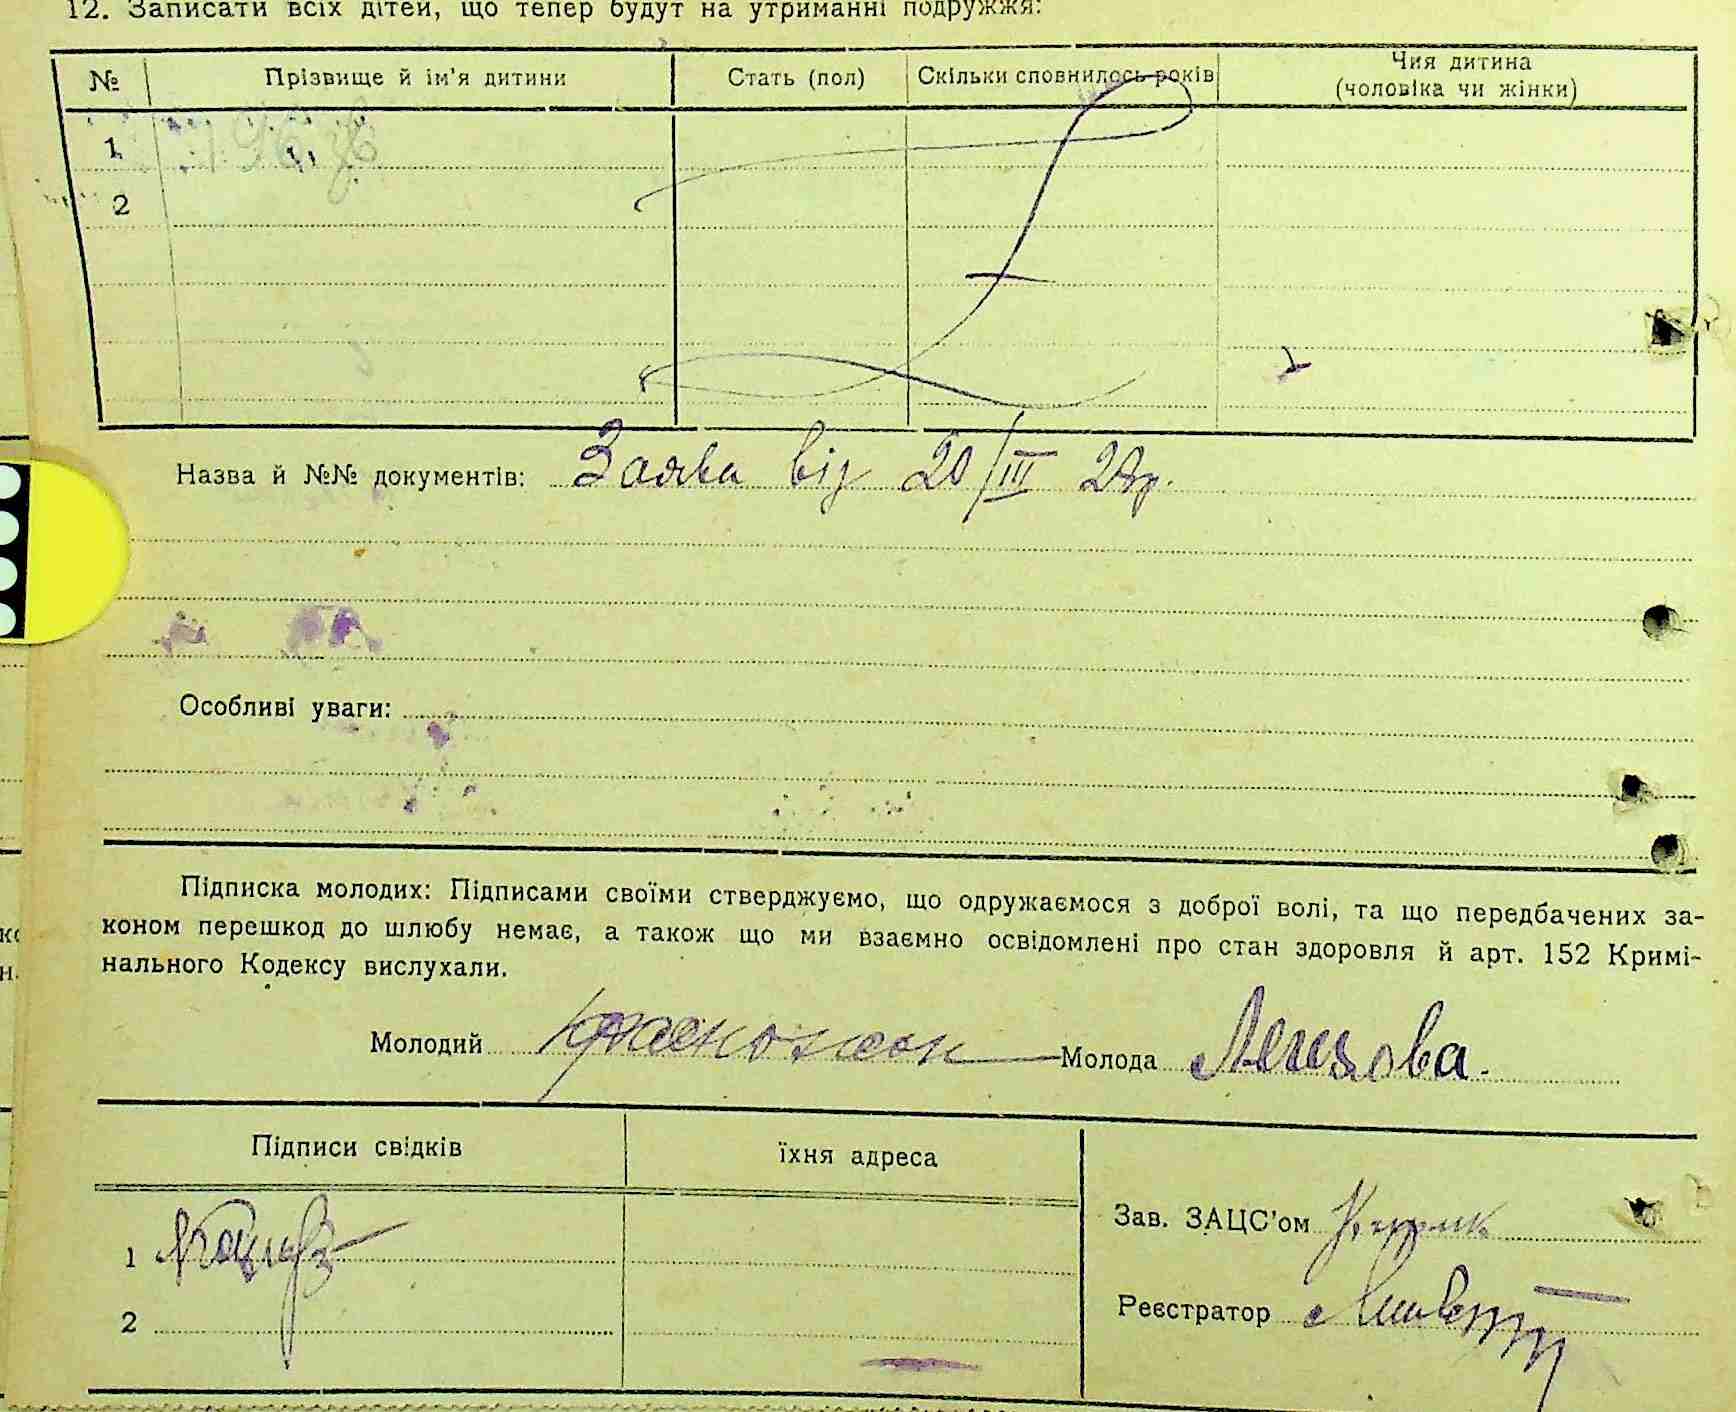 12. Записати всіх дітей, що тепер будут на утриманні подружжя:
№ Прізвище й ім'я дитини Стать (пол) Скільки сповнилось років Чия дитина (чоловіка чи жінки)
1
2
Назва й №№ документів: Заява від 20/III 28р.
Особливі уваги:
Підписка молодих: Підписами своїми стверджуємо, що одружаємося з доброї волі, та що передбачених за-
коном перешкод до шлюбу немає, а також що ми взаємно освідомлені про стан здоровля й арт. 152 Кримі-
нального Кодексу вислухали.
Молодий Молода
Підписи свідків їхня адреса
Зав. ЗАЦС'ом
1
Реєстратор
2